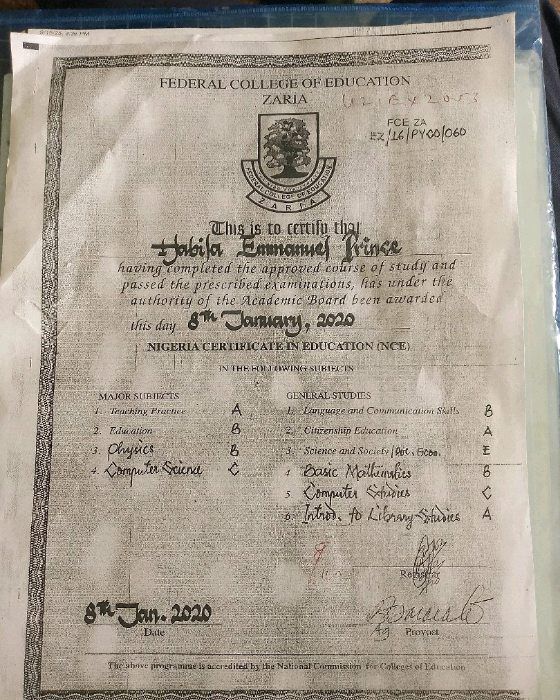 FEDERAL COLLEGE OF EDUCATION
ZARIA
FCE ZA
EZ/16/PYCO/060
FEDERAL COLLEGE OF EDUCATION
ZARIA
This is to certify that
Habila Emmanuel Prince
having completed the approved course of study and
passed the prescribed examinations, has under the
authority of the Academic Board been awarded
this day 8th January, 2020
NIGERIA CERTIFICATE IN EDUCATION (NCE)
IN THE FOLLOWING SUBJECTS
MAJOR SUBJECTS
1. Teaching Practice A
2. Education B
3. Physics B
4. Computer Science C
GENERAL STUDIES
1. Language and Communication Skills B
2. Citizenship Education A
3. Science and Society/Pol. Econ. E
4 Basic Mathematics B
5 Computer Studies C
6 Introd. to Library Studies A
Registrar
8th Jan. 2020
Date
Ag Provost
The above programme is accredited by the National Commission for Colleges of Education